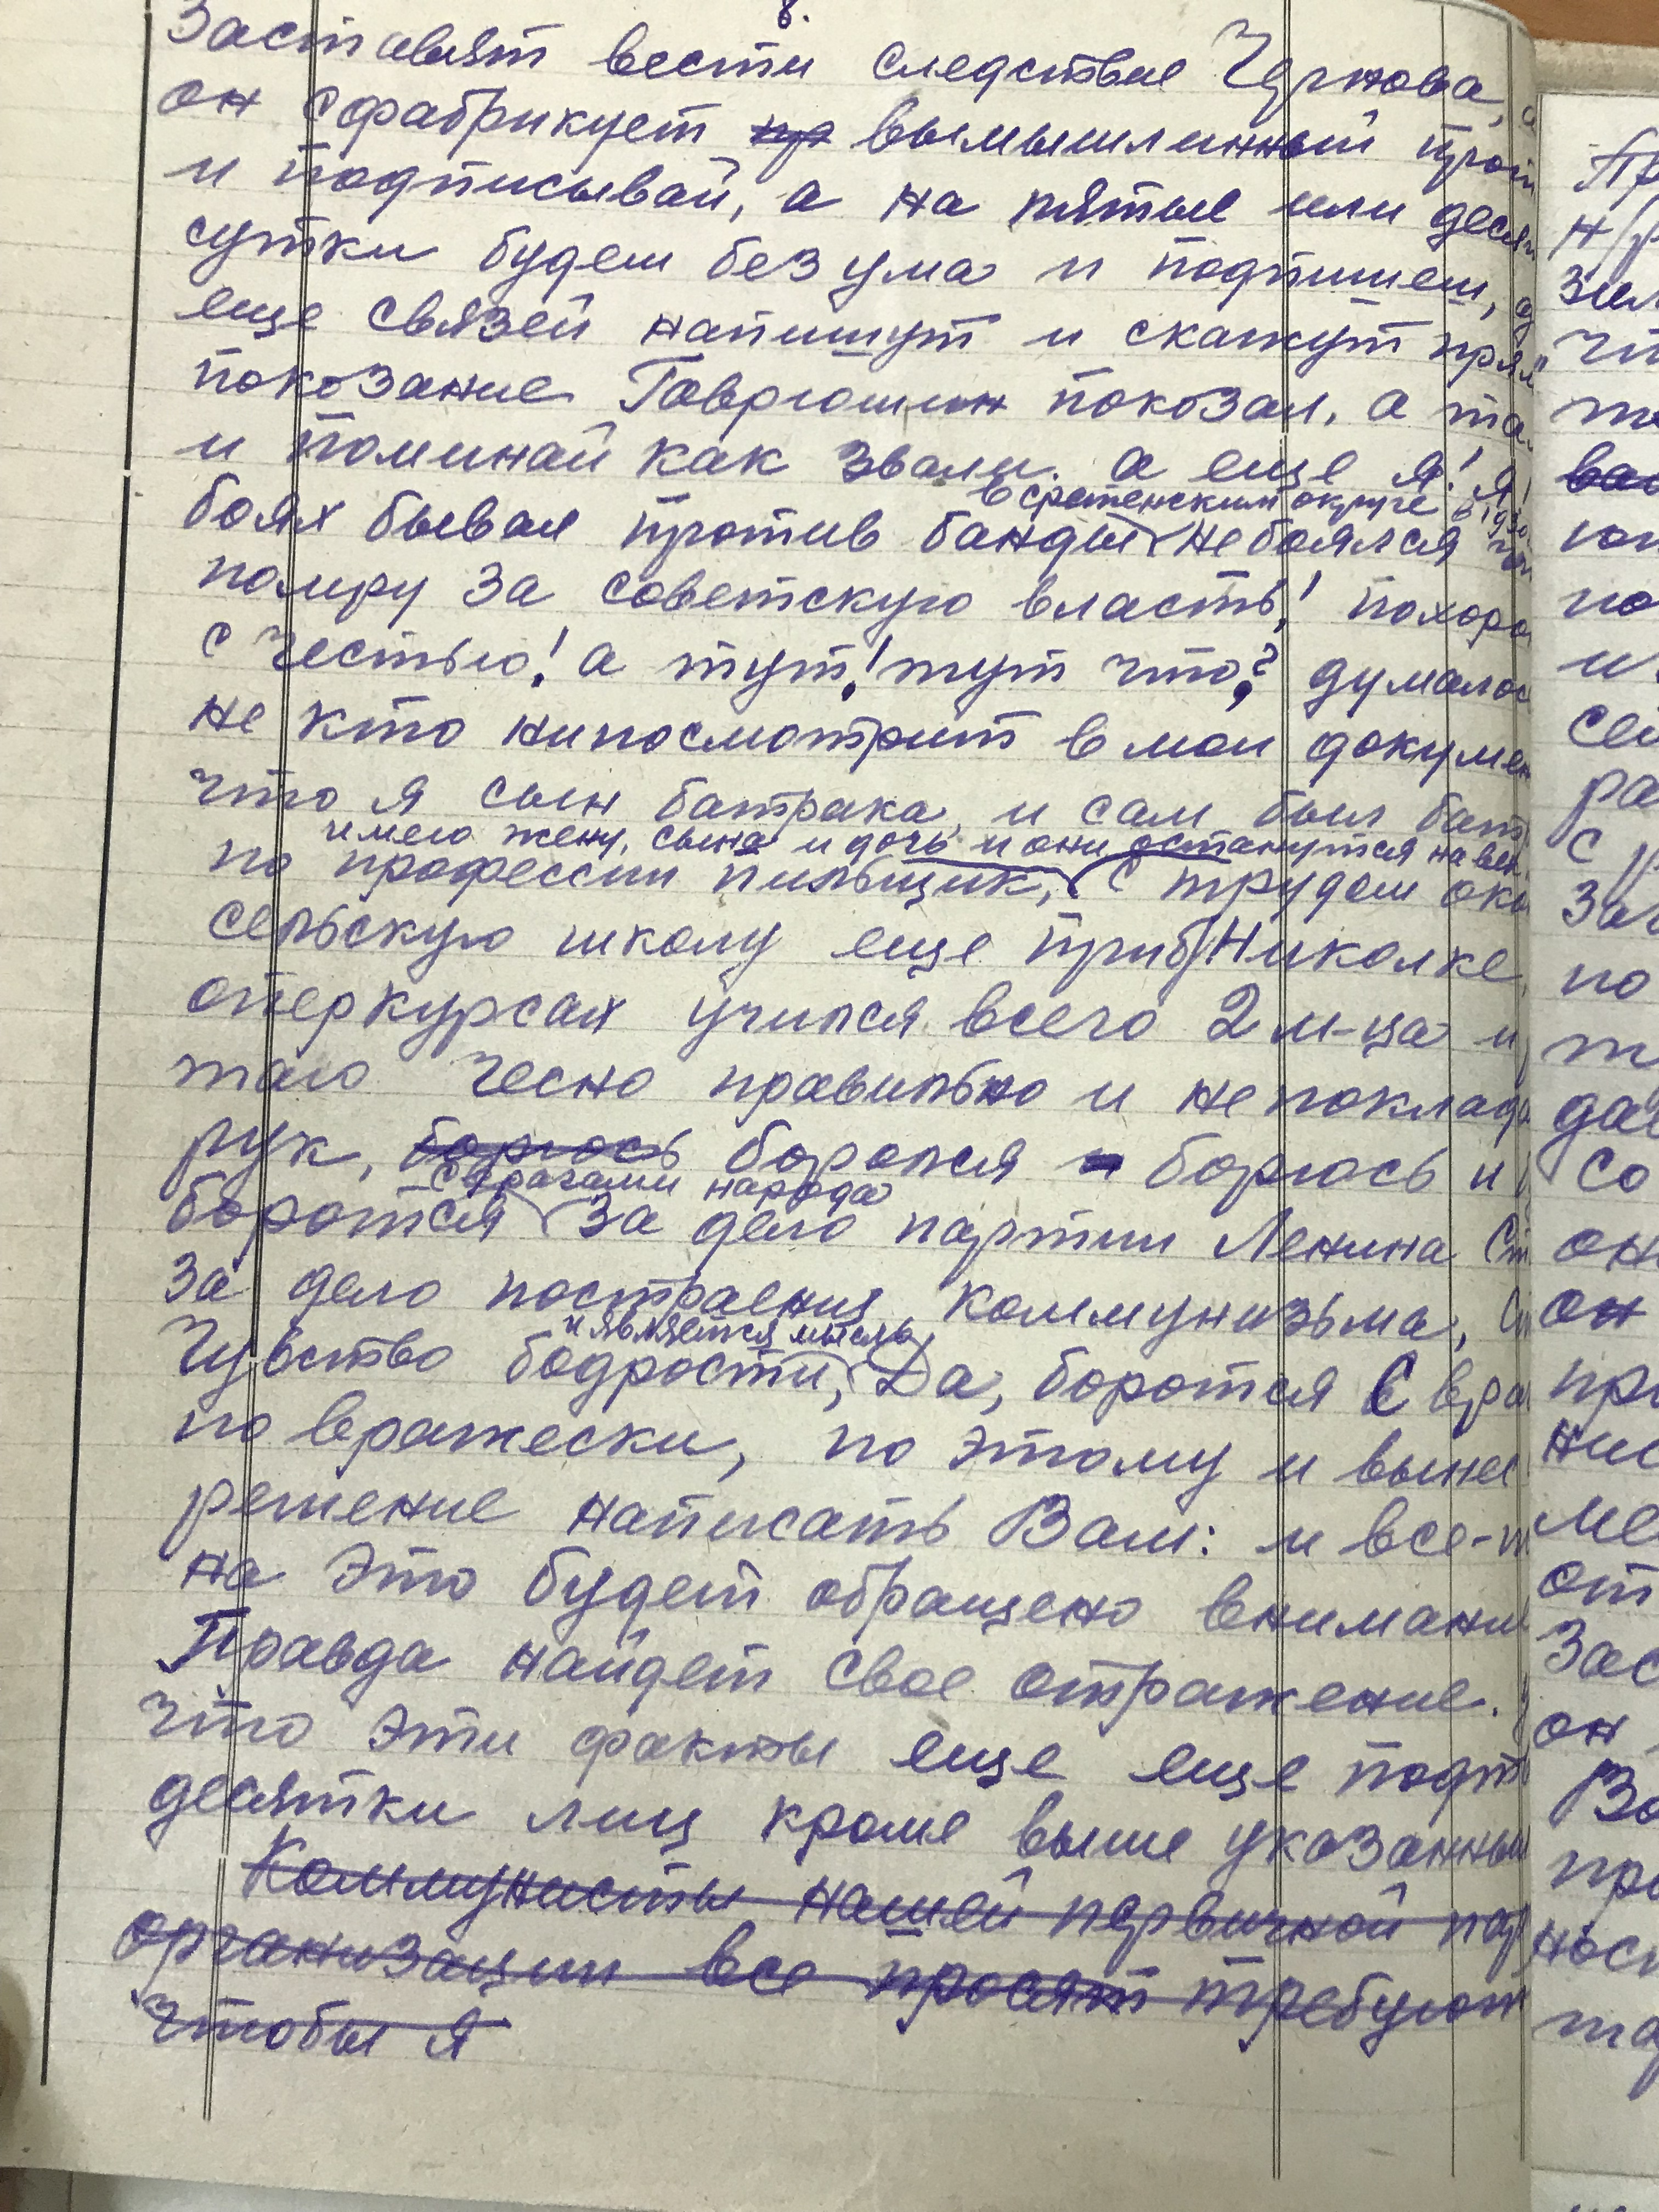 8.
Заставят вести следствие Чурнова,
он сфабрикует пр вымышленный прот
и подписывай, а на пятые или деся
сутки будеш без ума и подпишеш,
еще связей напишут и скажут прям
покозание Гаврюшин покозал, а та
и поминай как звали. а еще я! я!
в сретенским округе
боях бывал против банды не боялся
помру за советскую власть! похоро
с честью! а тут! тут что? думалос
не кто нипосмотрит в мои докумен
что я сын батрака, и сам был бат
имею жену, сына и дочь и они останутся на век
по профессии пильщик, с трудом око
сельскую школу еще при б/Николке,
оперкурсах учился всего 2 м-ца и
таю чесно правильно и непоклада
рук, борюсь боролся и борюсь и
с врагами народа
боротся за дело партии Ленина Ст
за дело построения коммунизьма,
и является мысль,
Чувство бодрости, Да, боротся с вра
по вражески, по этому и вынес
решение написать Вам: и все-т
на это будет обращено внимани
Правда найдет свое отражение.
что эти факты еще еще подт
десятки лиц кроме выше указанных
Коммунисты нашей первичной пар
организации все просят требуют
чтобы я
Пр
н/р
зил
чт
то
ва
по
и
сей
ра
с р
Заг
по
т
дав
со
он
он
пр
нис
ме
от
Зас
он
Во
пр
ност
та